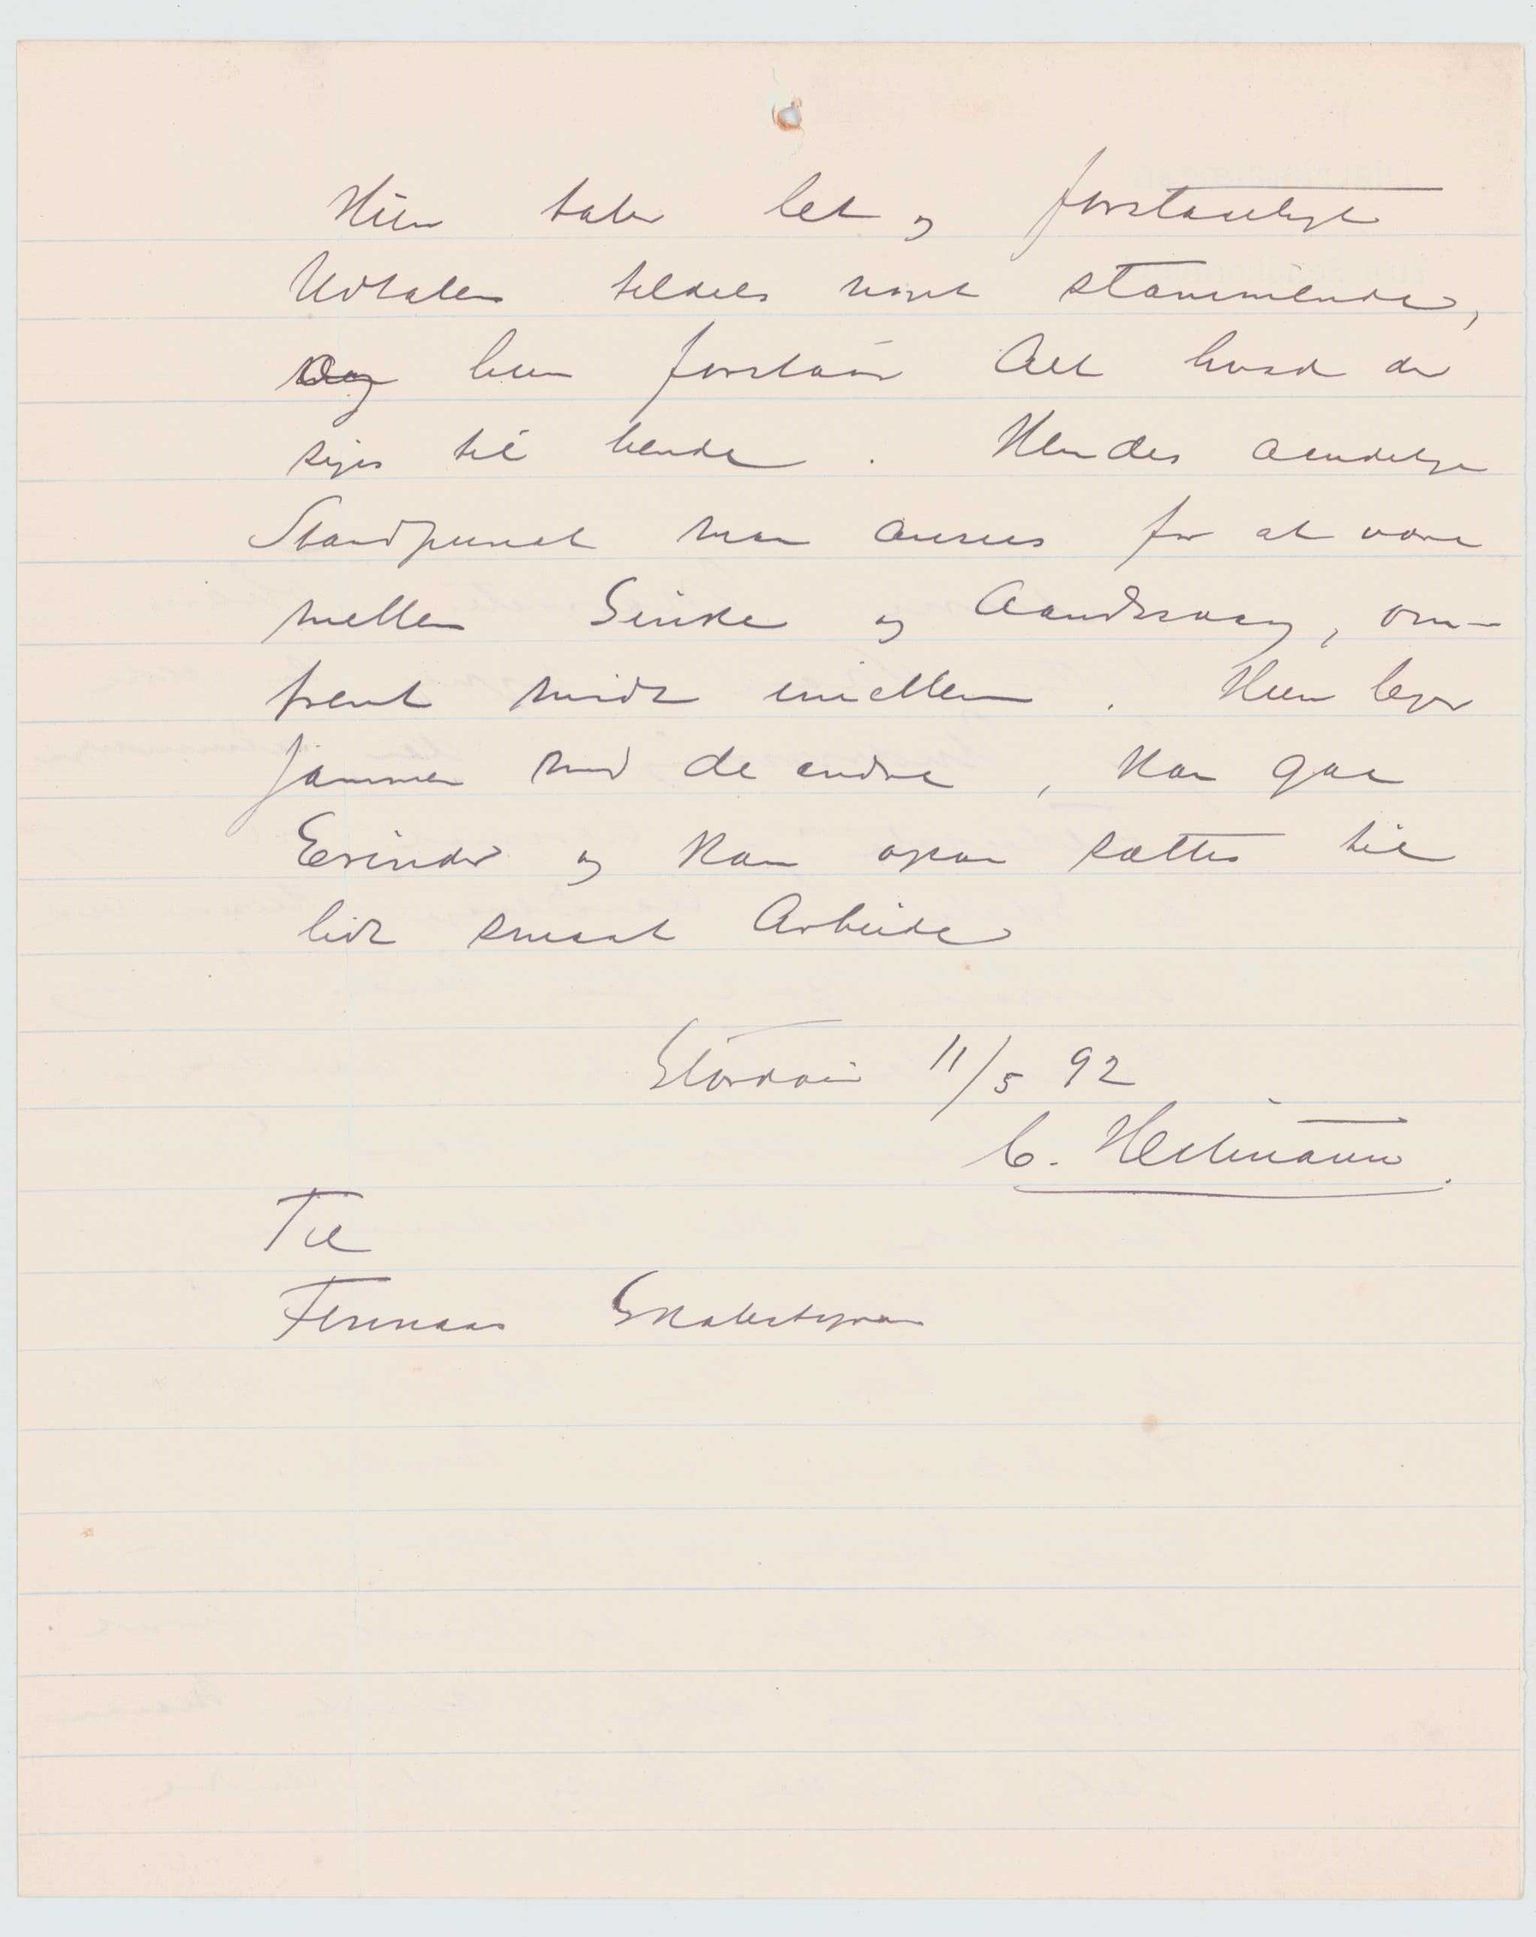 Hun taler let og forstaaeligt
Udtalen tildels noget stammende,
og hun forstaar Alt hvad der
siges til hende. Hendes aandelige
Standpunct maa ansees for at være
mellem Sinke og Aandssvag, om-
trent midt imellem. Hun leger
sammen med de andre, kan gaa
Erinder og kan ogsaa sættes til
lidt smaat Arbeide
Stordøen 11/5 92
C. Heitmann
Til
Finnaas Skolestyre